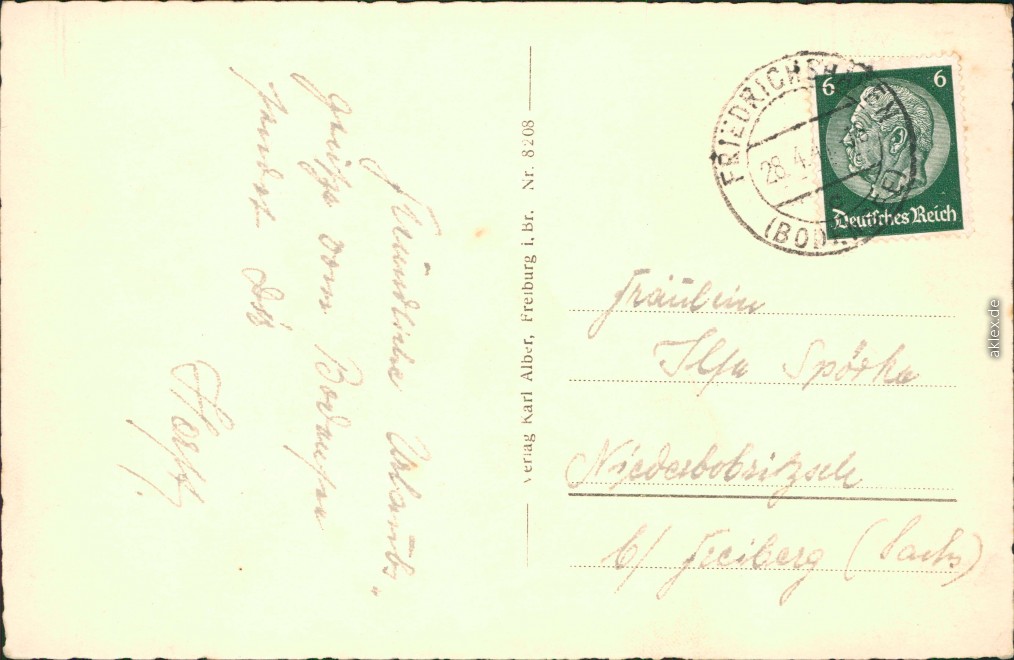 Freundliche Urlaubs-
grüße vom Bodensee
sendet Dir
Verlag Karl Alber, Freiburg i. Br. Nr. 8208
FRIEDRICHSHAFEN
28.4.
(BODENSEE)
6 6
Deutsches Reich
Fräulein
Ilse Spörke
Niederbobritzsch
b/ Freiberg (Sachs)
aklex.de